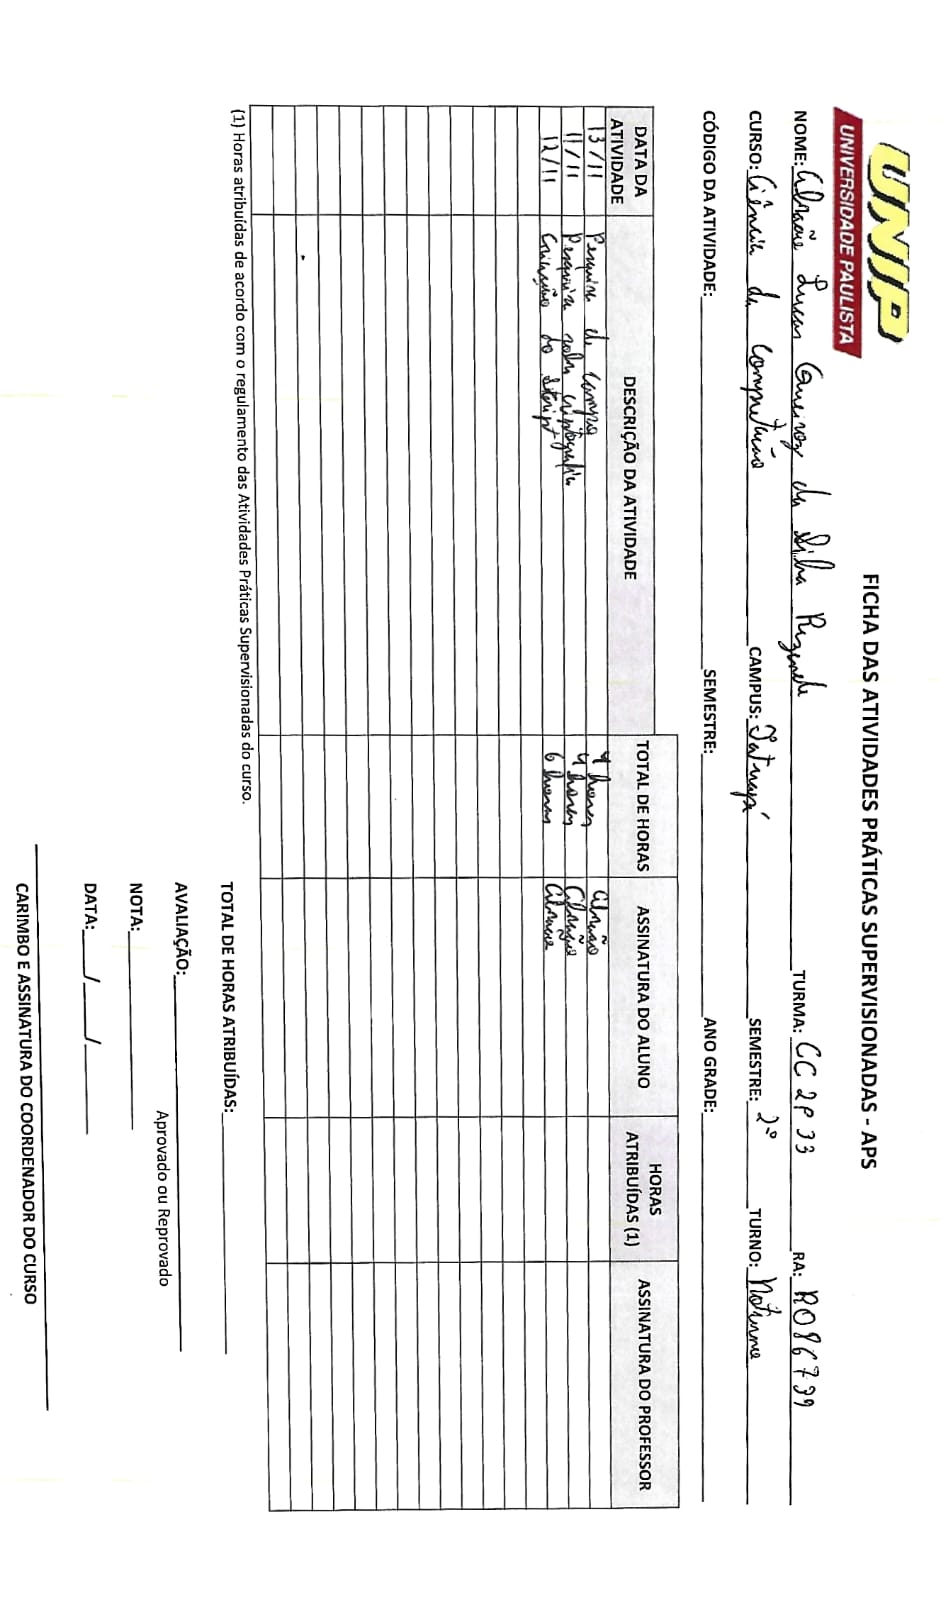 UNIP
UNIVERSIDADE PAULISTA
FICHA DAS ATIVIDADES PRÁTICAS SUPERVISIONADAS - APS
NOME: Lucas Queiroz da Silva Rezende TURMA: CC2P33 RA: R086799
CURSO: Ciência da Computação CAMPUS: Tatuapé SEMESTRE: 2º TURNO: Noturno
CÓDIGO DA ATIVIDADE: SEMESTRE: ANO GRADE:
DATA DA ATIVIDADE DESCRIÇÃO DA ATIVIDADE TOTAL DE HORAS ASSINATURA DO ALUNO HORAS ATRIBUÍDAS (1) ASSINATURA DO PROFESSOR
13/11 Pesquisa de campo 4 horas
11/11 Pesquisa sobre criptografia 4 horas
12/11 Criação do script 6 horas
(1) Horas atribuídas de acordo com o regulamento das Atividades Práticas Supervisionadas do curso.
TOTAL DE HORAS ATRIBUÍDAS:
AVALIAÇÃO:
Aprovado ou Reprovado
NOTA:
DATA: / /
CARIMBO E ASSINATURA DO COORDENADOR DO CURSO